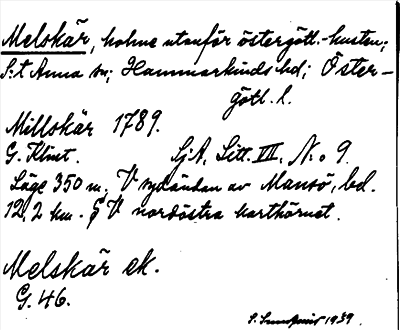 Melskär, holme utanför östergötl.-kusten;
S:t Anna sn; Hammarkinds hd; Öster-
götl. l.
Millskär 1789.
G. Klint. SjA, Litt. VII, N:o 9.
Läge 350 m. V sydändan av Mansö, bd.
12,2 km. V nordöstra karthörnet.
Melskär ek.
G. 46.
S. Sundquist 1939.